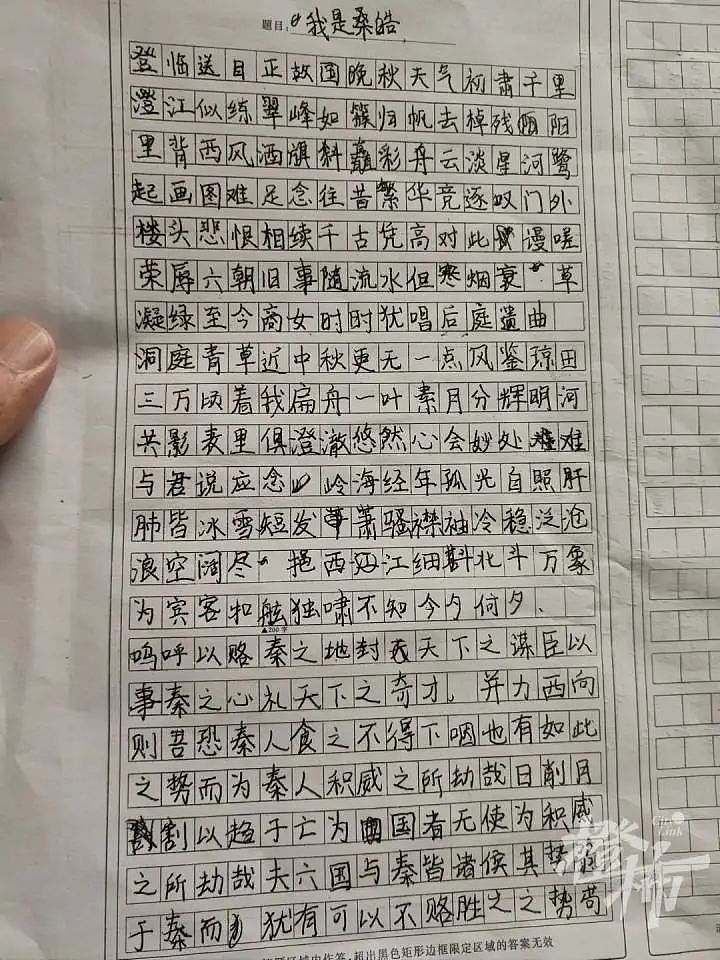 题目: 我是桑皓
登临送目正故国晚秋天气初肃千里
澄江似练翠峰如簇归帆去棹残阳
里背西风酒旗斜矗彩舟云淡星河鹭
起画图难足念往昔繁华竞逐叹门外
楼头悲恨相续千古凭高对此谩嗟
荣辱六朝旧事随流水但寒烟衰草
凝绿至今商女时时犹唱后庭遗曲
洞庭青草近中秋更无一点风鉴琼田
三万顷着我扁舟一叶素月分辉明河
共影表里俱澄澈悠然心会妙处难
与君说应念岭海经年孤光自照肝
肺皆冰雪短发萧骚襟袖冷稳泛沧
浪空阔尽挹西江细斟北斗万象
为宾客扣舷独啸不知今夕何夕、
▲200字
呜呼以赂秦之地封天下之谋臣以
事秦之心礼天下之奇才，并力西向
则吾恐秦人食之不得下咽也有如此
之势而为秦人积威之所劫哉日削月
割以趋于亡为国者无使为积威
之所劫哉夫六国与秦皆诸侯其势
于秦而犹有可以不赂胜之之势苟
答题区域内作答，超出黑色矩形边框限定区域的答案无效
City Link
橙柿